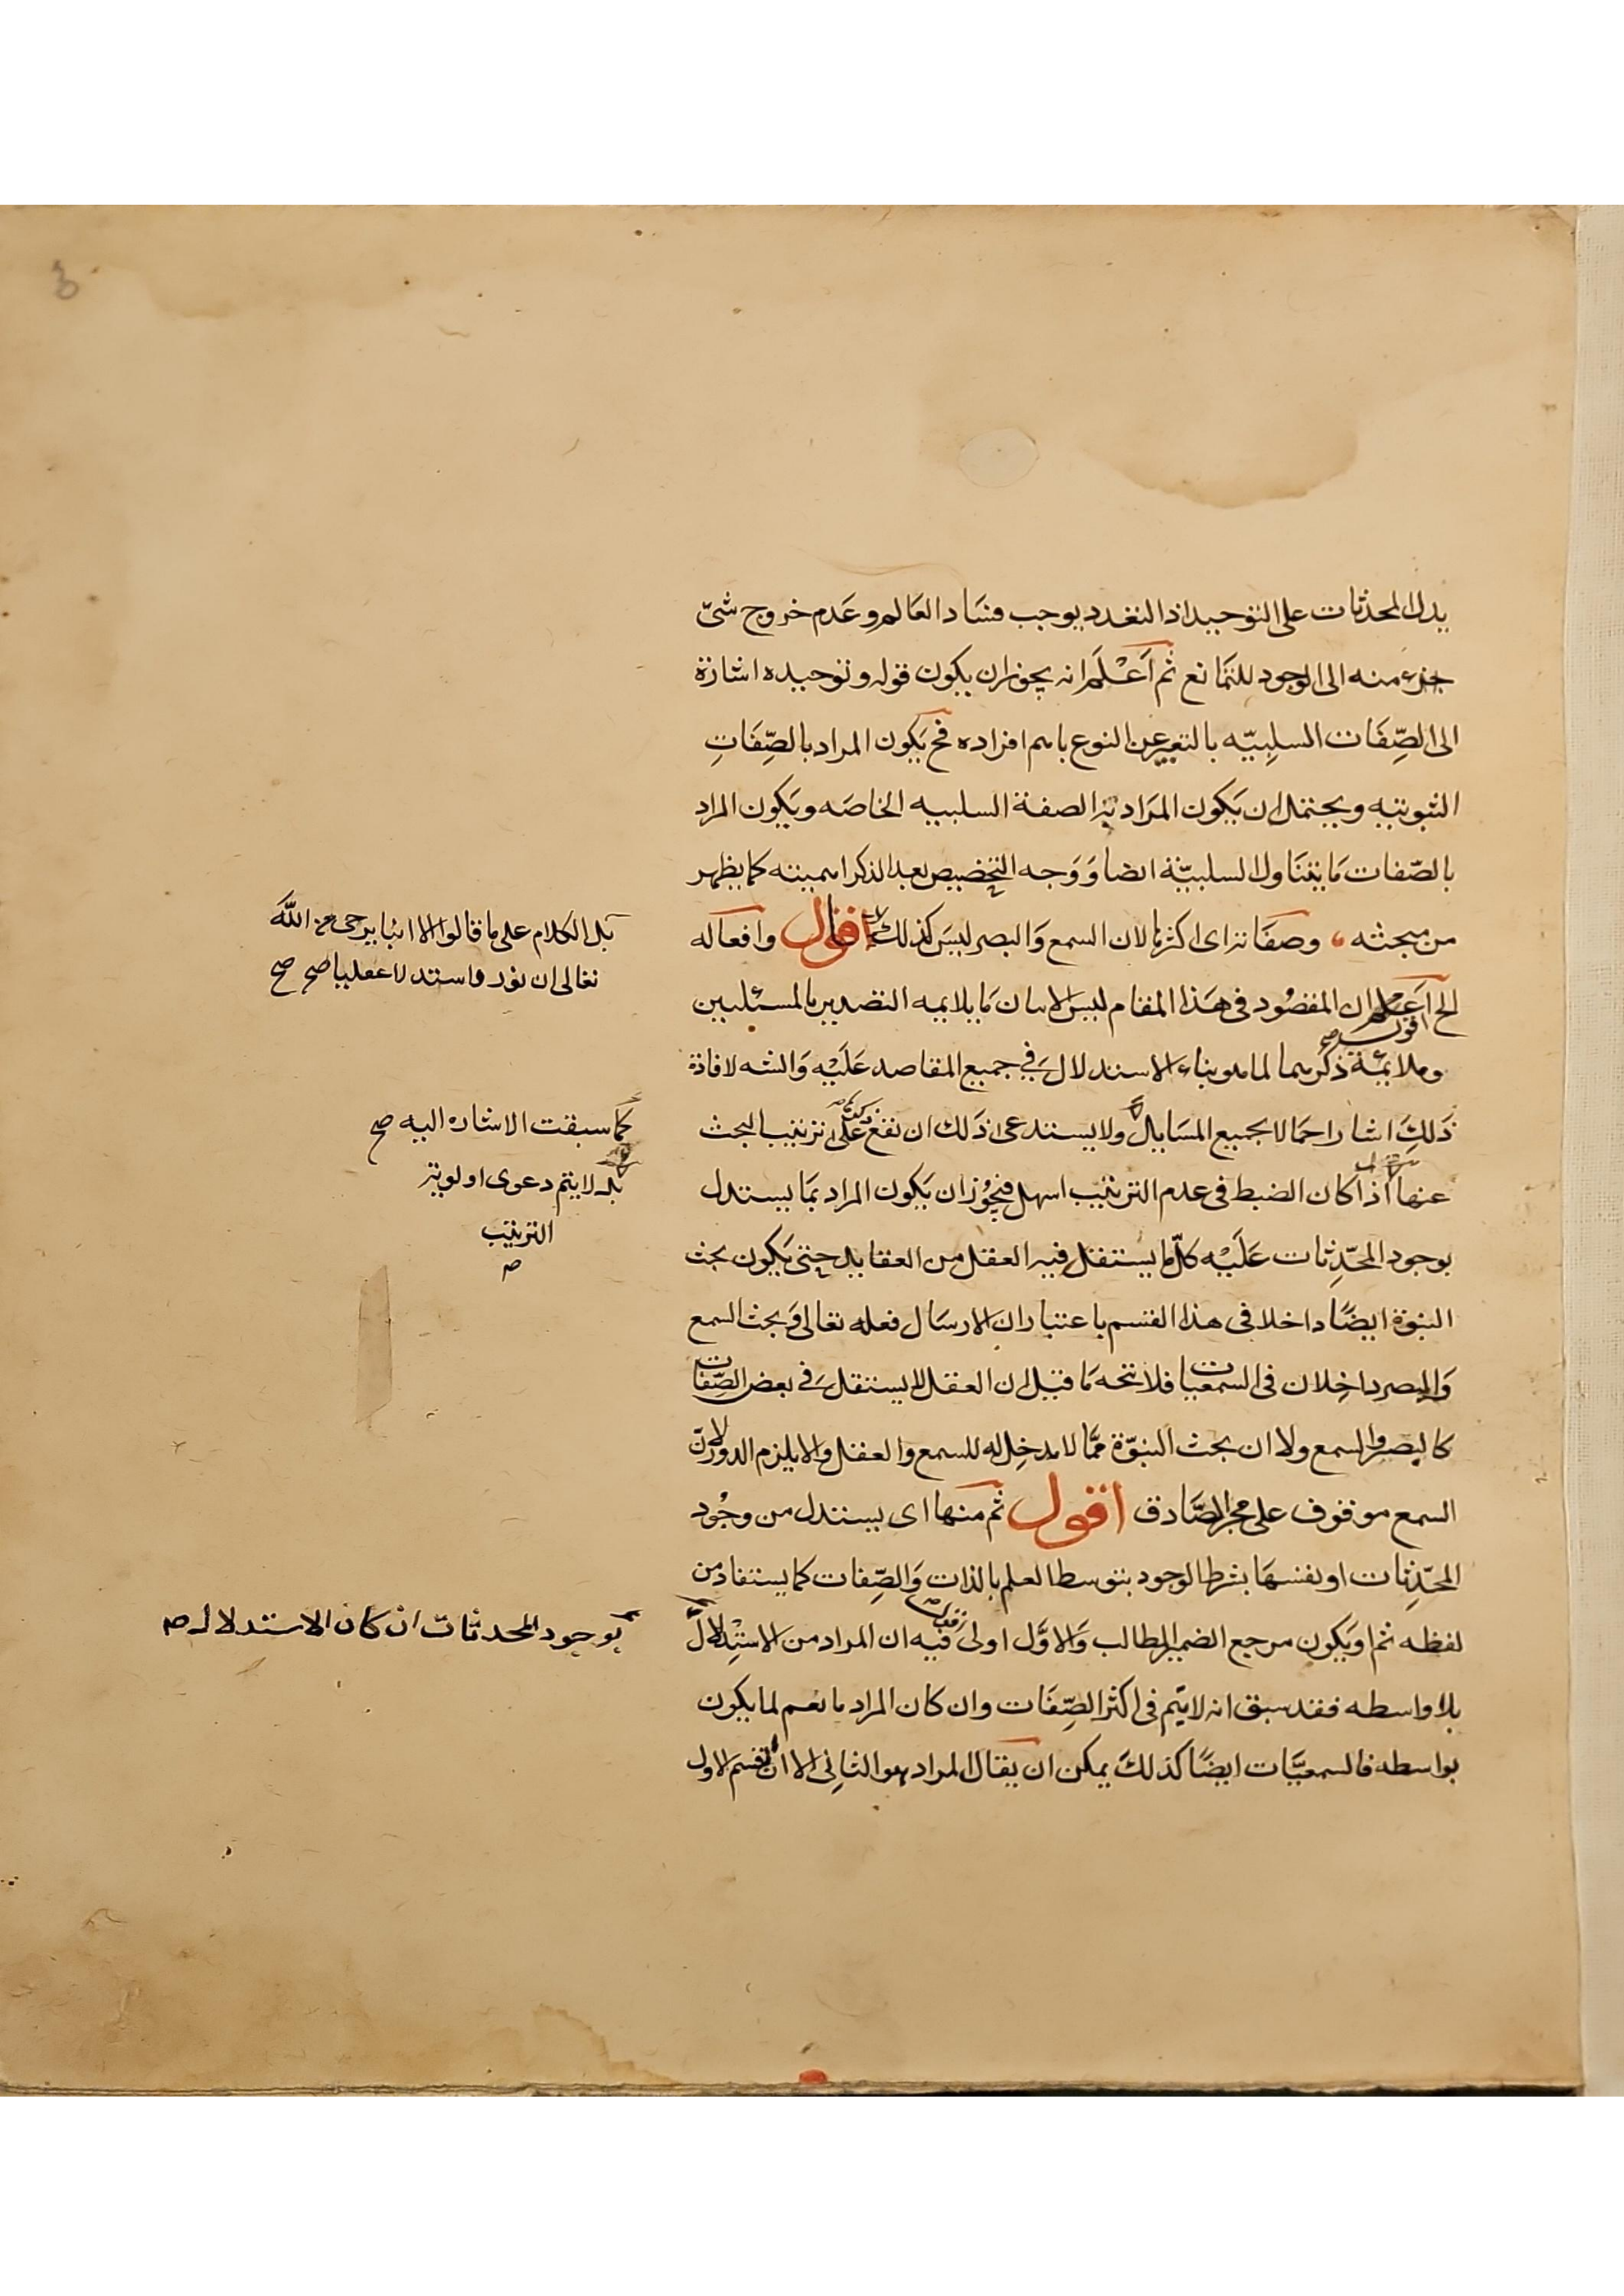 يدل المحدثات على التوحيد اذ التعدد يوجب فساد العالم وعدم خروج شئ
جزء منه الى الوجود للتمانع ثم اعلم انه يجوز ان يكون قوله وتوحيده اشارة
الى الصِّفَات السلبِيّه بالتعبير عن النوع باسم افراده فح يكون المراد بالصِّفَاتِ
الثبوتيه ويحتمل ان يكون المراد به الصفة السلبيه الخاصه ويكون المراد
بالصّفات مَا يتناول السلبيّة ايضا وَوَجه التخصيص بعد الذكر اهميته كما يظهر
من مبحثه وصفاته اى اكثرها لان السمع وَالبصر ليسَ كذلك اقول وافعاله
الخ اعلم ان المقصُود فى هَذا المقام ليس الا بيان مَا يلايمه التصدير بالمسئلتين
وملايمَة ذكرهما لما هو بناء الاستدلال فى جميع المقاصد عَلَيْه وَالتنبه لافادة
ذَلكِ اشار اجمالا بجميع المسَايل ولا يستدعى ذَلك ان تقع على ترتيب البحث
عنها اذا كان الضبط فى عدم الترتيب اسهل فيجُوز ان يكون المراد بمَا يستدل
بوجود المحّدِثات عَلَيْه كلّ ما يستقل فيه العقل من العقايد حتى يكون بحث
النبوّة ايضًا داخلا فى هذا القسم باعتبار ان الارسَال فعله تعالى وَبحث السمع
وَالبصر داخِلان فى السمعيات فلا تجه مَا قيل ان العقل لا يستقل فى بعض الصِّفات
كالبصر والسمع ولا ان بحث النبوّة ممَّا لا مدخِل له للسمع والعقل والا يلزم الدور لانّ
السمع موقوف على مخبر الصَّادق اقول ثم منها اى يستدل من وجُود
المحّدِثات او نفسهَا بشرط الوجود بتوسط العلم بالذات وَالصِّفات كما يستفاد من
لفظه ثم او يكون مرجع الضمير المطالب وَالاوَّل اولى فيه ان المراد من الاسْتِدْلال
بلا واسطه فقد سبق انه لا يتم فى اكثر الصِّفَات وان كان المراد ما يعم لما يكون
بواسطه فالسمعيَّات ايضًا كذلكَ يمكن ان يقال المراد هو الثانِى الا ان القسم الاول
بل الكلام على ما قالوا الا انا يرجى من اللّه
تعالى ان نورد استدلا عقليا صح صح
كما سبقت الاشاره اليه صح
بل لا يتم دعوى اولويته
الترتيب
بوجود المحدثات ان كان الاستدلال